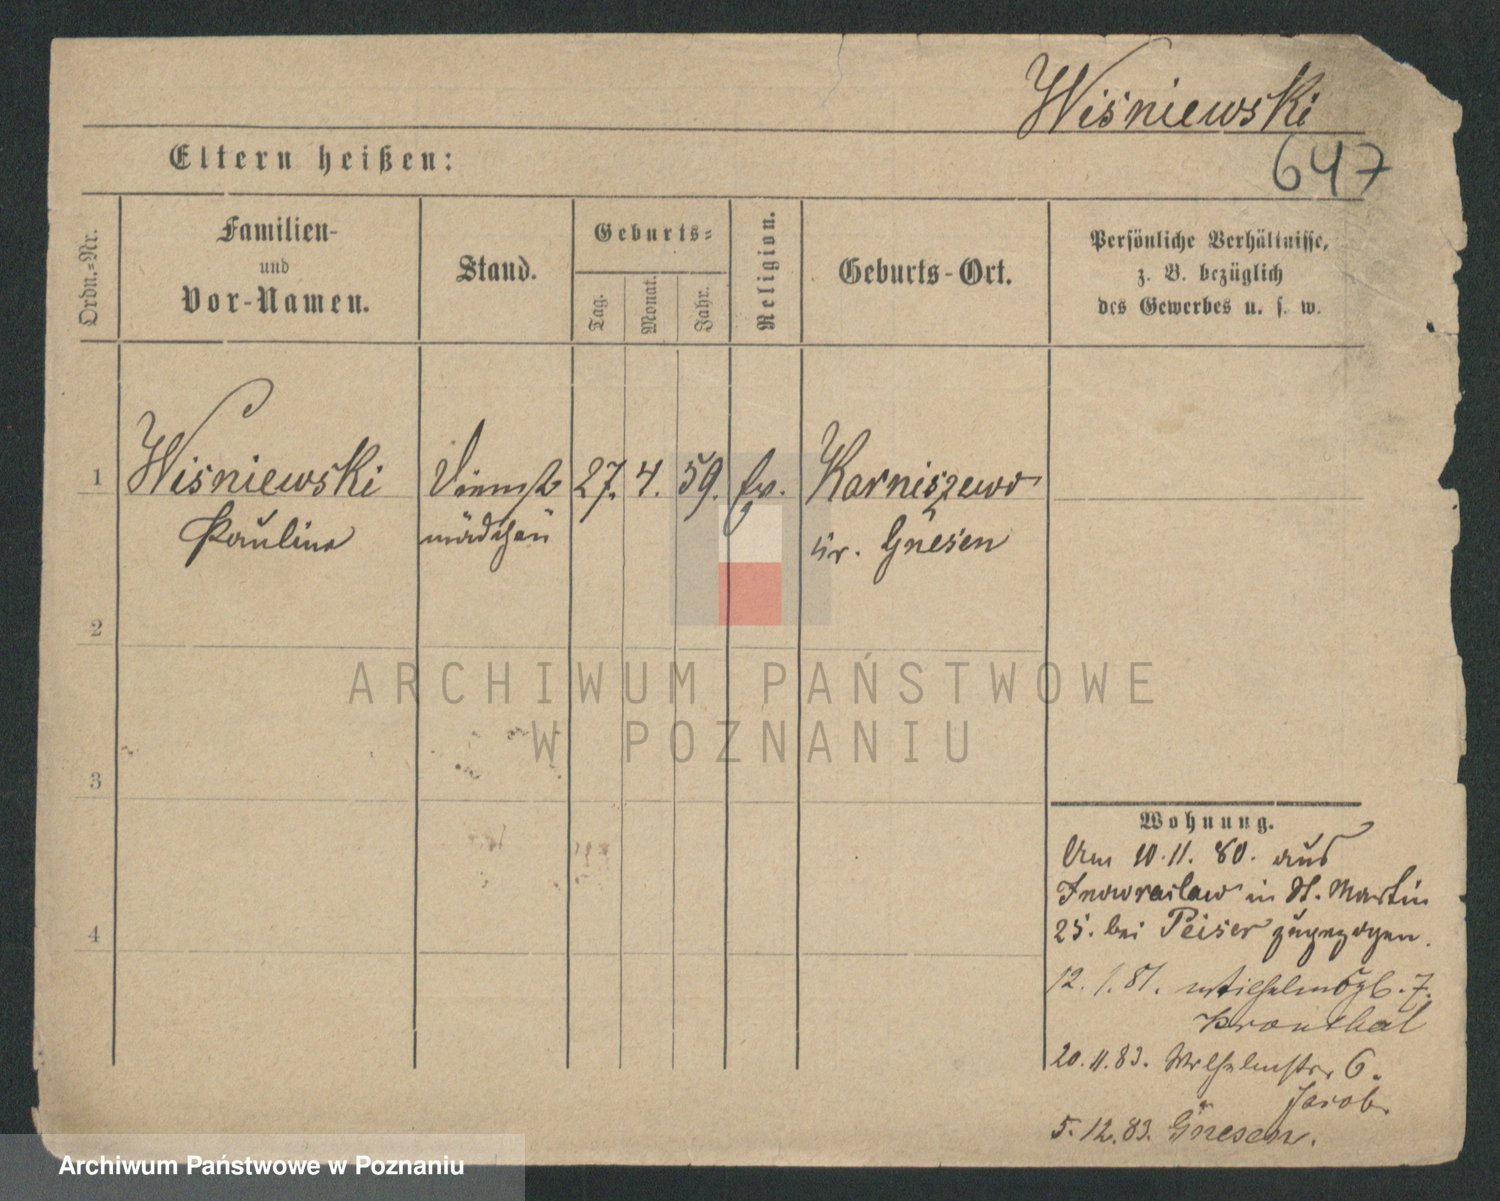 Wiśniewski
647
Eltern heißen:
Ordn.-Nr.
Familien-
und
Vor-Namen.
Stand.
Geburts-
Tag.
Monat.
Jahr.
Religion.
Geburts-Ort.
Persönliche Verhältnisse,
z. B. bezüglich
des Gewerbes u. s. w.
1
Wiśniewski
Pauline
Dienst
mädchen
27.
4.
59.
Ev.
Karniszewo
Kr. Gnesen
2
3
4
ARCHIWUM PAŃSTWOWE
W POZNANIU
Wohnung.
Am 10.11.80. aus
Inowraslaw in St. Martin
25. bei Peiser zugezogen.
12.1.81. Wilhelmspl. 7.
Kronthal
20.11.83. Wilhelmstr. 6.
Jacob.
5.12.83. Gnesen.
Archiwum Państwowe w Poznaniu